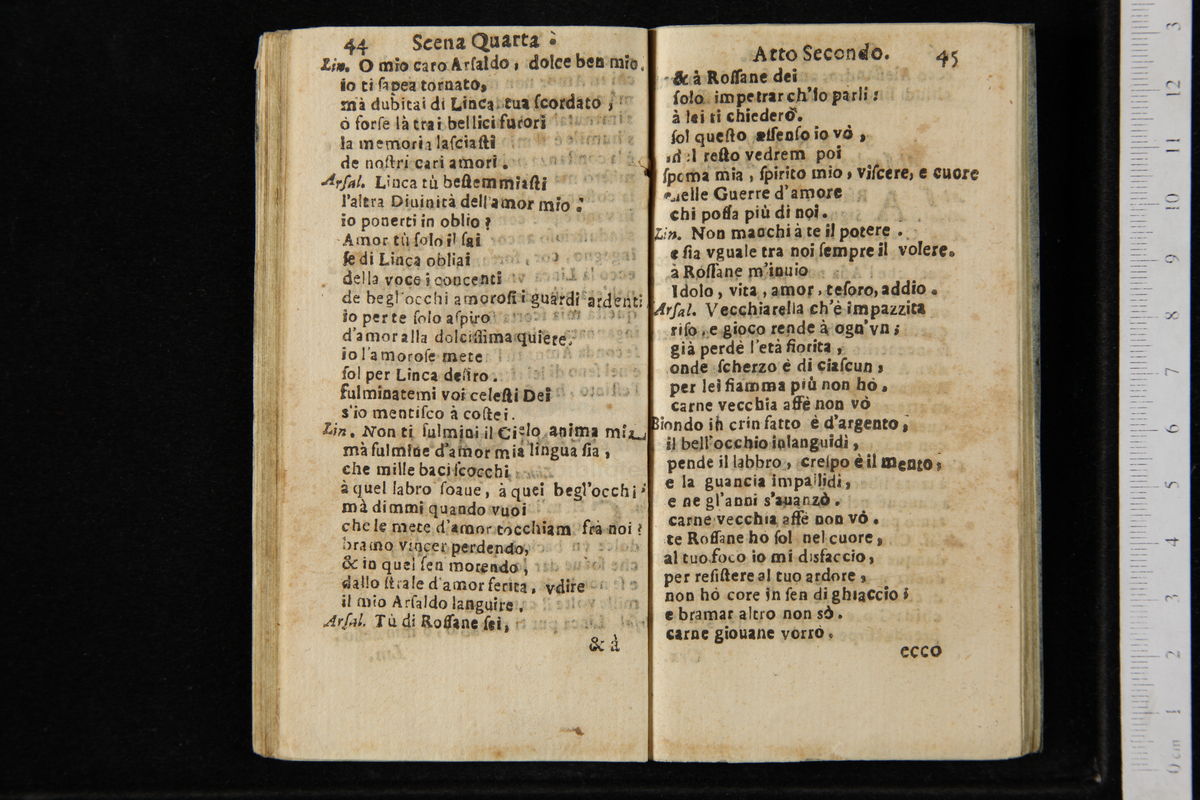 44 Scena Quarta
Lin. O mio caro Arſaldo, dolce ben mio.
io ti ſapea tornato,
mà dubitai di Linca tua ſcordato,
ò forſe là trai bellici furori
la memoria laſciaſti
de noſtri cari amori.
Arſal. Linca tù beſtemmiaſti
l'altra Diuinità dell'amor mio:
io ponerti in oblio?
Amor tù ſolo il ſai
ſe di Linca obliai
della voce i concenti
de begl'occhi amoroſi i guardi ardenti
io per te ſolo aſpiro
d'amor alla dolciſſima quiete.
io l'amoroſe mete
ſol per Linca deſiro.
fulminatemi voi celeſti Dei
s'io mentiſco à coſtei.
Lin. Non ti fulmini il Cielo anima mia
mà fulmine d'amor mia lingua ſia,
che mille baci ſcocchi
à quel labro ſoaue, à quei begl'occhi
mà dimmi quando vuoi
che le mete d'amor tocchiam frà noi?
bramo vincer perdendo,
& in quel ſen morendo,
dallo ſtrale d'amor ferita, vdire
il mio Arſaldo languire.
Arſal. Tù di Roſſane ſei,
& à
Atto Secondo. 45
& à Roſſane dei
ſolo impetrar ch'io parli:
à lei ti chiederò.
ſol queſto aſſenſo io vò,
del reſto vedrem poi
ſpema mia, ſpirito mio, viſcere, e cuore
nelle Guerre d'amore
chi poſſa più di noi.
Lin. Non manchi à te il potere.
e ſia vguale tra noi ſempre il volere.
à Roſſane m'inuio
Idolo, vita, amor, teſoro, addio.
Arſal. Vecchiarella ch'è impazzita
riſo, e gioco rende à ogn'vn;
già perdè l'età fiorita,
onde ſcherzo è di ciaſcun,
per lei fiamma più non hò.
carne vecchia affè non vò
Biondo in crin fatto è d'argento,
il bell'occhio inlanguidì,
pende il labbro, creſpo è il mento,
e la guancia impallidì,
e ne gl'anni s'auanzò.
carne vecchia affè non vò.
te Roſſane ho ſol nel cuore,
al tuo foco io mi disfaccio,
per reſiſtere al tuo ardore,
non hò core in ſen di ghiaccio;
e bramar altro non sò.
carne giouane vorrò.
ecco
0 cm 1 2 3 4 5 6 7 8 9 10 11 12 3